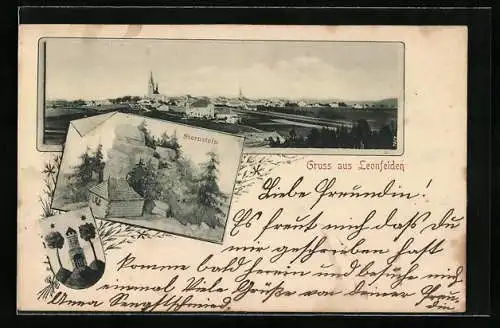 Sternstein
Gruss aus Leonfelden
Liebe Freundin!
Es freut mich daß du
mir geschrieben hast
komme bald herein und besuche mich
einmal Viele Grüße von deiner Freun-
din
Anna Sengstschmied.